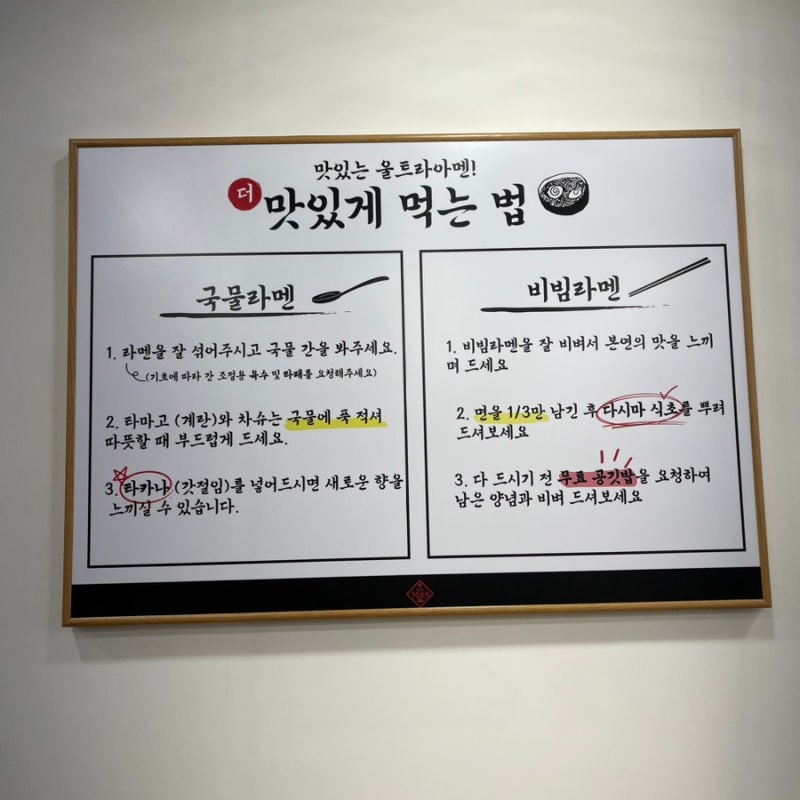 맛있는 울트라아멘!
더 맛있게 먹는 법
국물라멘
1. 라멘을 잘 섞어주시고 국물 간을 봐주세요.
(기호에 따라 간 조절용 육수 및 타래를 요청해주세요)
2. 타마고 (계란)와 차슈는 국물에 푹 적셔
따뜻할 때 부드럽게 드세요.
3. 타카나 (갓절임)를 넣어드시면 새로운 향을
느끼실 수 있습니다.
비빔라멘
1. 비빔라멘을 잘 비벼서 본연의 맛을 느끼
며 드세요
2. 면을 1/3만 남긴 후 다시마 식초를 뿌려
드셔보세요
3. 다 드시기 전 무료 공깃밥을 요청하여
남은 양념과 비벼 드셔보세요